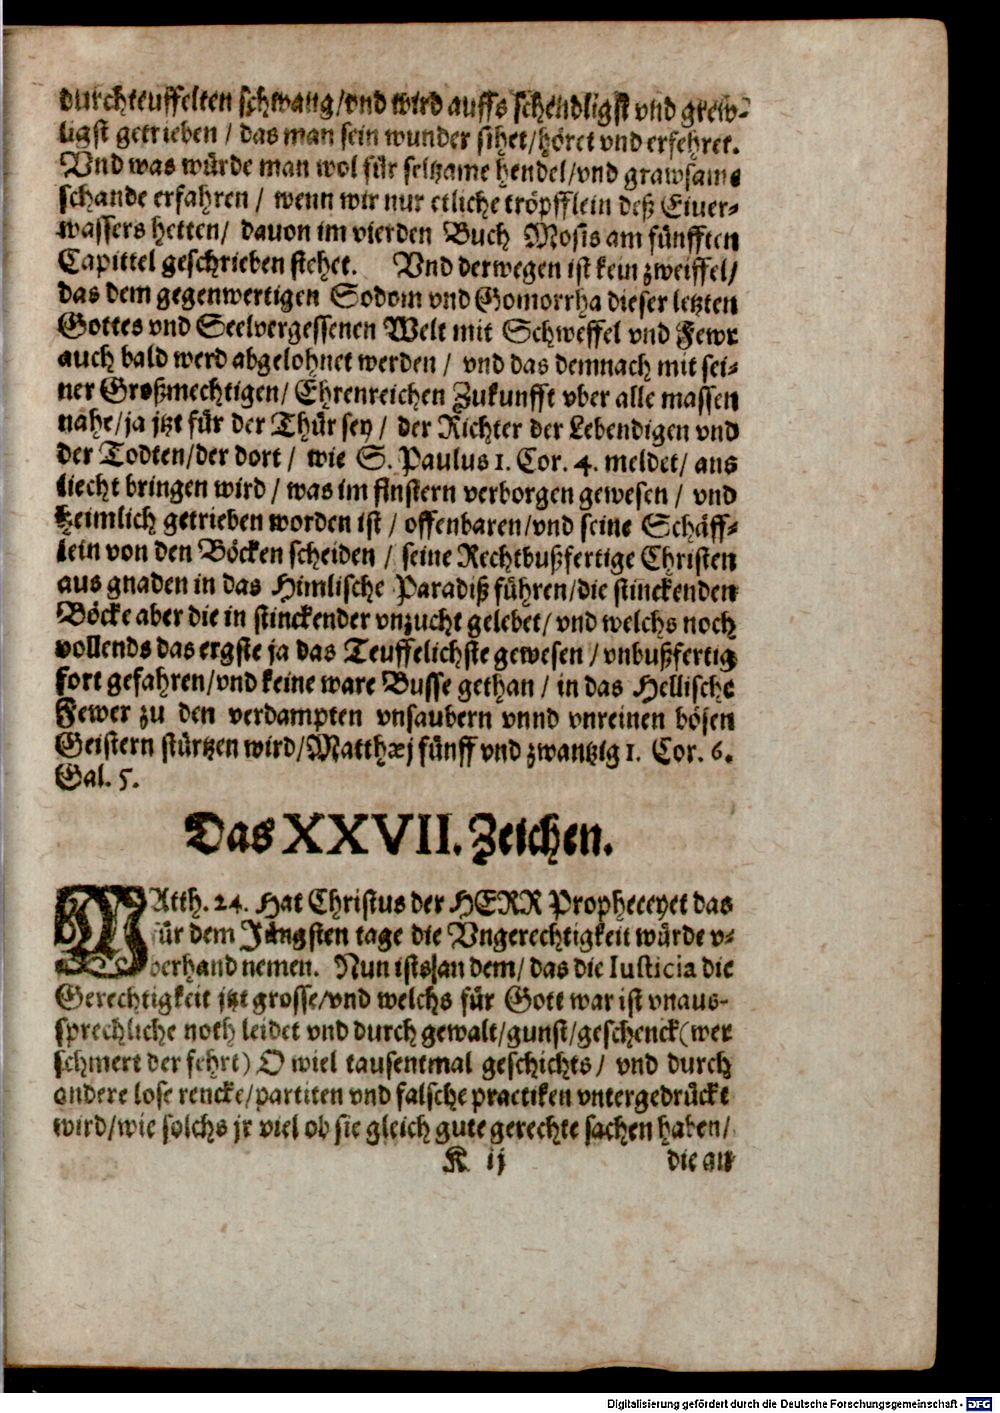 durchteuffelten schwang/vnd wird auffs schendligst vnd grew-
ligst getrieben / das man sein wunder sihet/höret vnd erfehret.
Vnd was würde man wol für seltzame hendel/vnd grawsame
schande erfahren / wenn wir nur etliche tröpfflein deß Eiuer-
wassers hetten/ dauon im vierden Buch Mosis am fünfften
Capittel geschrieben stehet. Vnd derwegen ist kein zweiffel/
das dem gegenwertigen Sodom vnd Gomorrha dieser letzten
Gottes vnd Seelvergessenen Welt mit Schweffel vnd Fewr
auch bald werd abgelohnet werden / vnd das demnach mit sei-
ner Großmechtigen/ Ehrenreichen Zukunfft vber alle massen
nahe/ja jtzt für der Thür sey / der Richter der Lebendigen vnd
der Todten/der dort / wie S. Paulus 1. Cor. 4. meldet/ ans
liecht bringen wird / was im finstern verborgen gewesen / vnd
heimlich getrieben worden ist / offenbaren/vnd seine Schäff-
lein von den Böcken scheiden / seine Rechtbußfertige Christen
aus gnaden in das Himlische Paradiß führen/die stinckenden
Böcke aber die in stinckender vnzucht gelebet/ vnd welchs noch
vollends das ergste ja das Teuffelichste gewesen / vnbußfertig
fort gefahren/vnd keine ware Busse gethan / in das Hellische
Fewer zu den verdampten vnsaubern vnnd vnreinen bösen
Geistern stürtzen wird/Matthæj fünff vnd zwantzig 1. Cor. 6.
Gal. 5.
Das XXVII. Zeichen.
MAtth. 24. Hat Christus der HERR Propheceyet das
für dem Jüngsten tage die Vngerechtigkeit würde v-
berhand nemen. Nun ists an dem/ das die Iusticia die
Gerechtigkeit jtzt grosse/vnd welchs für Gott war ist vnaus-
sprechliche noth leidet vnd durch gewalt/gunst/geschenck(wer
schmert der fehrt) O wiel tausentmal geschichts / vnd durch
andere lose rencke/partiten vnd falsche practiken vntergedrückt
wird/wie solchs jr viel ob sie gleich gute gerechte sachen haben/
K ij die an
Digitalisierung gefördert durch die Deutsche Forschungsgemeinschaft - DFG